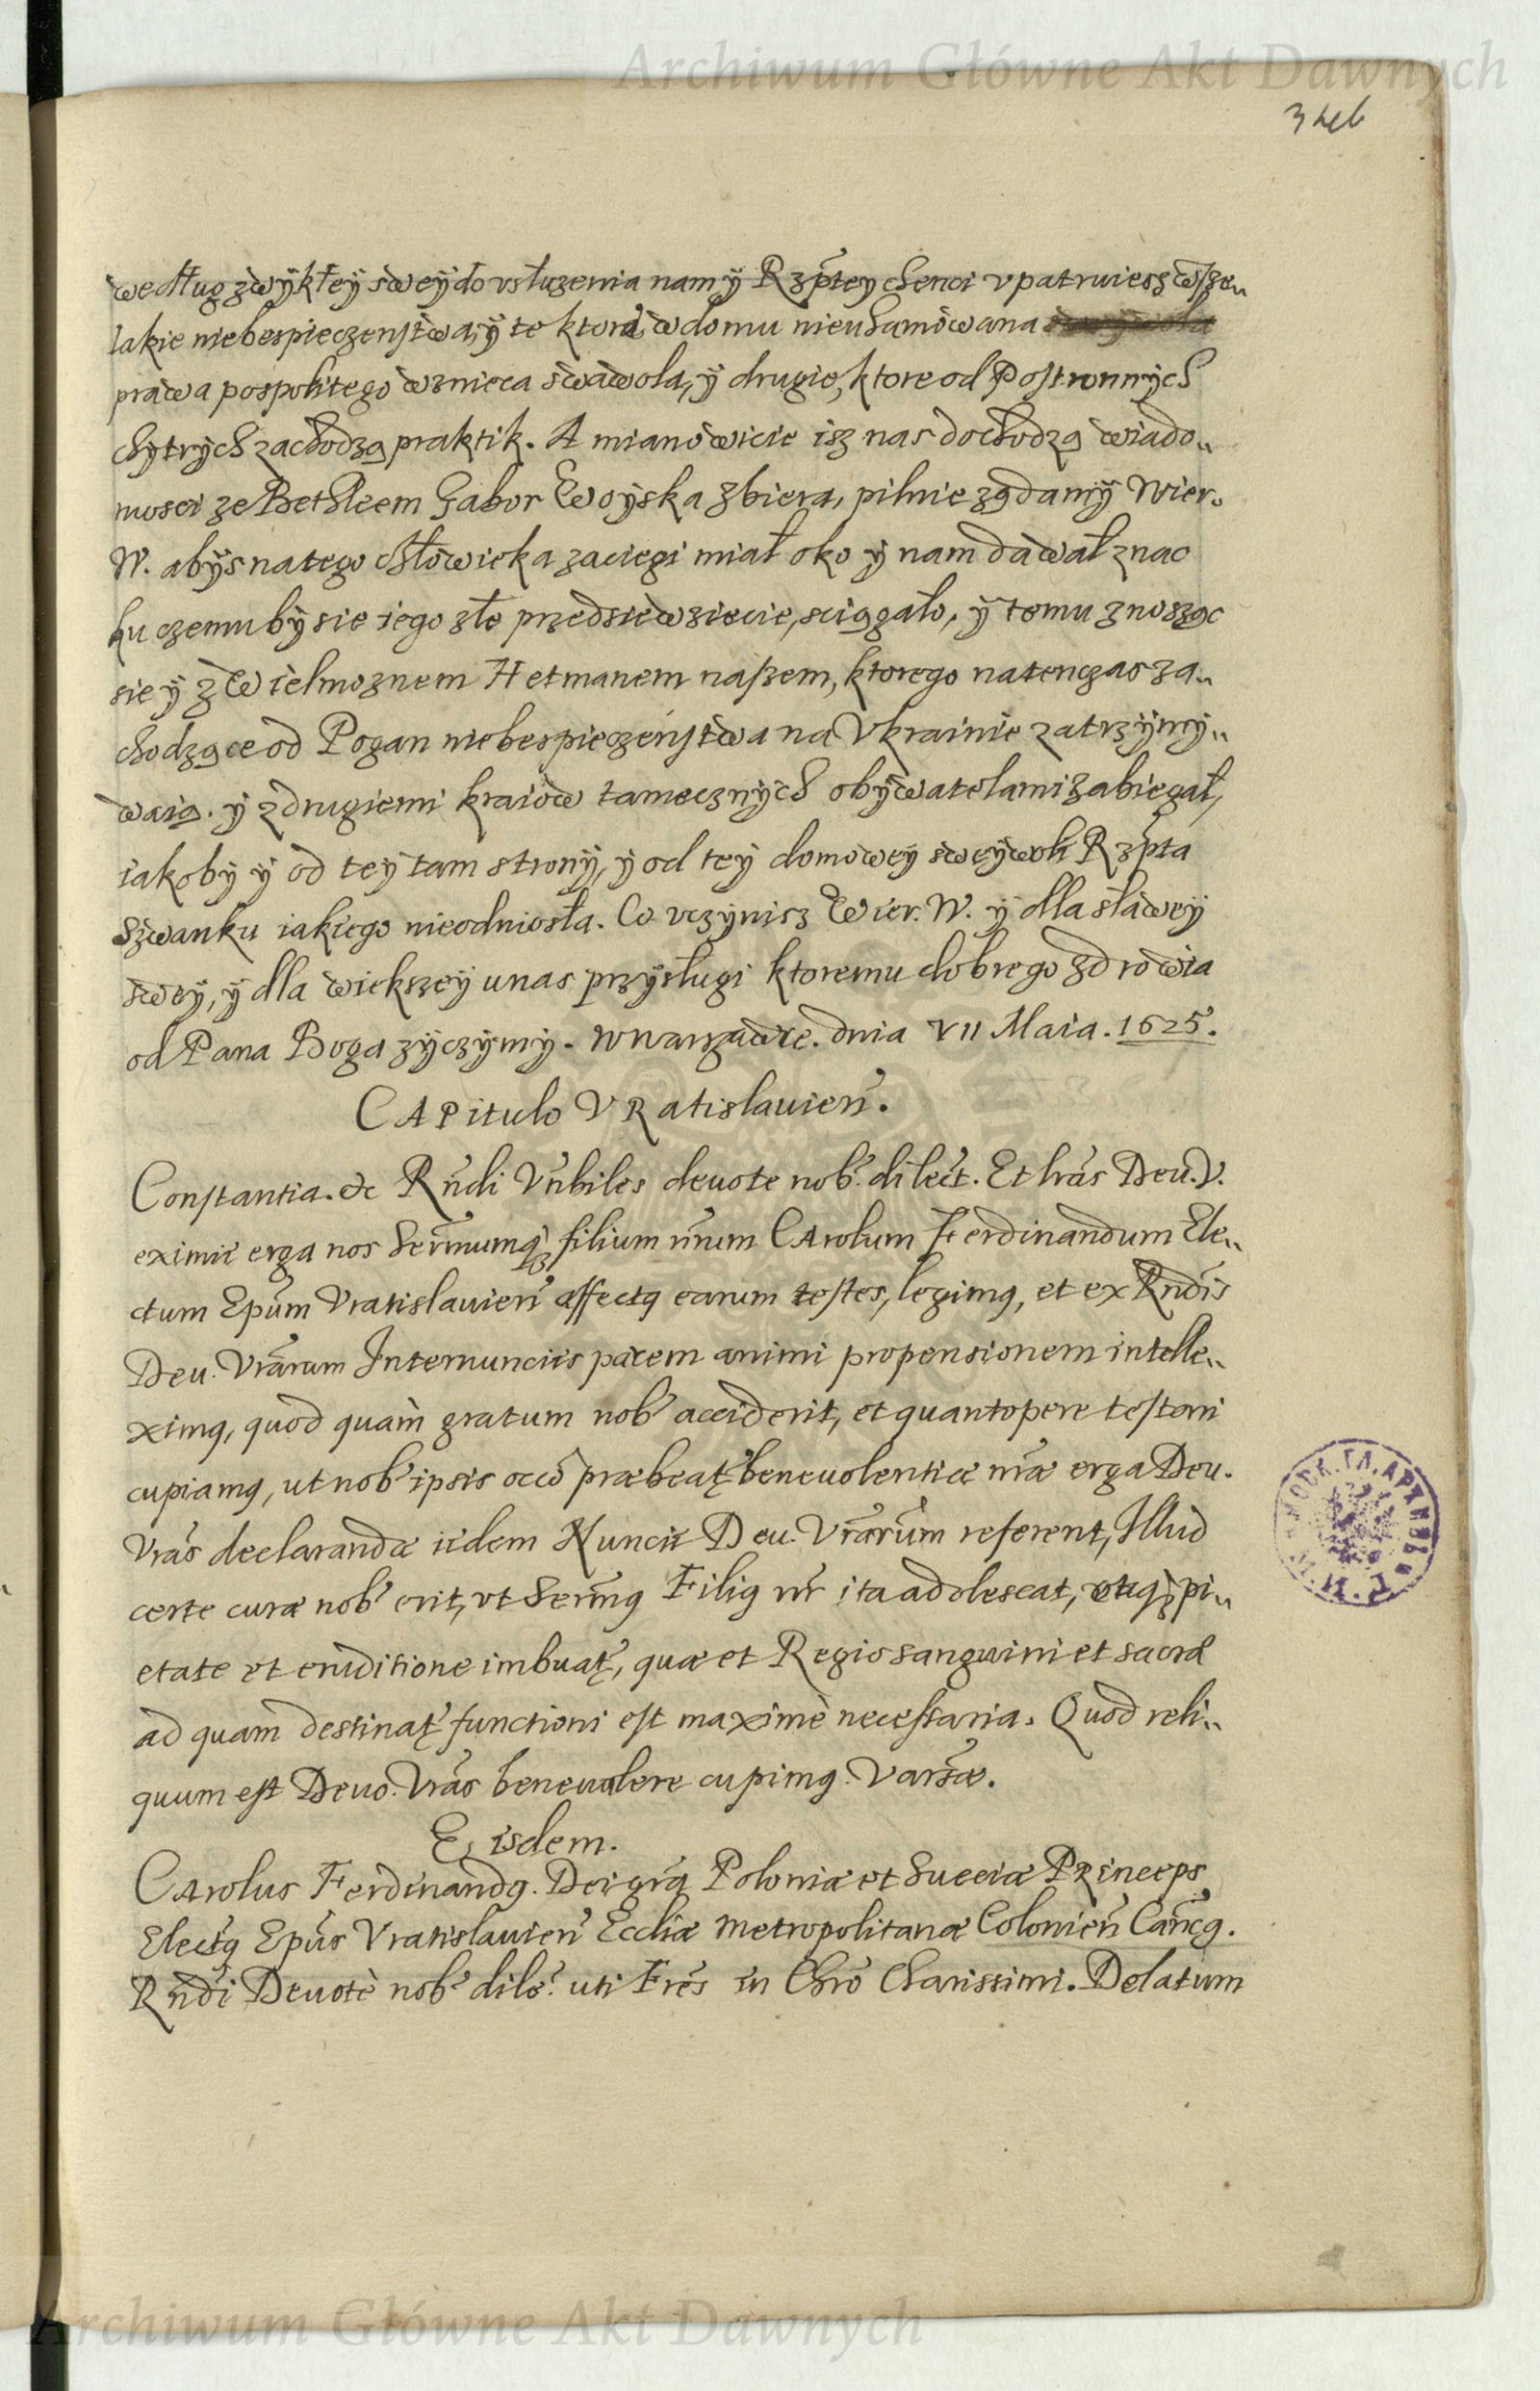 Archiwum Główne Akt Dawnych
według zwykłey swey do usłuzenia nam y Rzptey chenci upatruiesz wsze„
lakie niebespieczenstwa, y te ktorą w domu nieuhamowana
prawa pospolitego wznieca swawola, y drugie, ktore od Postronnych
chytrych zachodzą praktik. A mianowicie isz nas dochodzą wiado„
mosci ze Bethleem Gabor Woyska zbiera, pilnie ządamy Wier.
W. abys na tego człowieka zaciegi miał oko y nam dawał znac
ku czemu by sie iego złe przedsiewziecie, sciągało, y temu znosząc
sie y z Wielmoznem Hetmanem naszem, ktorego natenczas za„
chodzące od Pogan niebespieczenstwa na Vkrainie zatrzymy„
waią. y z drugiemi kraiow tamecznych obywatelami zabiegał,
iakoby y od tey tam strony, y od tey domowey sweywoli Rzpta
szwanku iakiego nieodniosła. Co uczynisz Wier. W. y dla sławey
swey, y dla wiekszey u nas przysługi ktoremu dobrego zdrowia
od Pana Boga zyczymy. W Warszawie. dnia VII Maia. 1625.
CAPitulo VRatislavien.
Constantia. &c Rndi Vnbiles devote nob. dilect. Et lras Deu. V.
eximii erga nos Sermumq filium nrum CArolum Ferdinandum Ele„
ctum Epum Vratislavien affectq earum testes, legimq, et ex Rndis
Deu. Vrarum Internunciis parem animi propensionem intelle„
ximq, quod quam gratum nob acciderit, et quantopere testari
cupiamq, ut nob ipsis occo præbeat benevolentiæ nræ erga Deu.
Vras declarandæ iidem Nuncii Deu. Vrarum referent, Illud
certe curæ nob erit, ut Sermq Filiq nr ita adolescat, eaq pi„
etate et eruditione imbuat, quæ et Regio sanguini et sacræ
ad quam destinat functioni est maximè necessaria. Quod reli„
quum est Devo. Vras bene valere cupimq. Varsæ.
Eisdem.
CArolus Ferdinandq. Dei gra Poloniæ et Sueciæ PRinceps
Electq Epus Vratislavien Eccliæ Metropolitanæ Colonien Cancq.
Rndi Devotè nob dile. uti Fres in Chro Charissimi. Delatum
Archiwum Główne Akt Dawnych